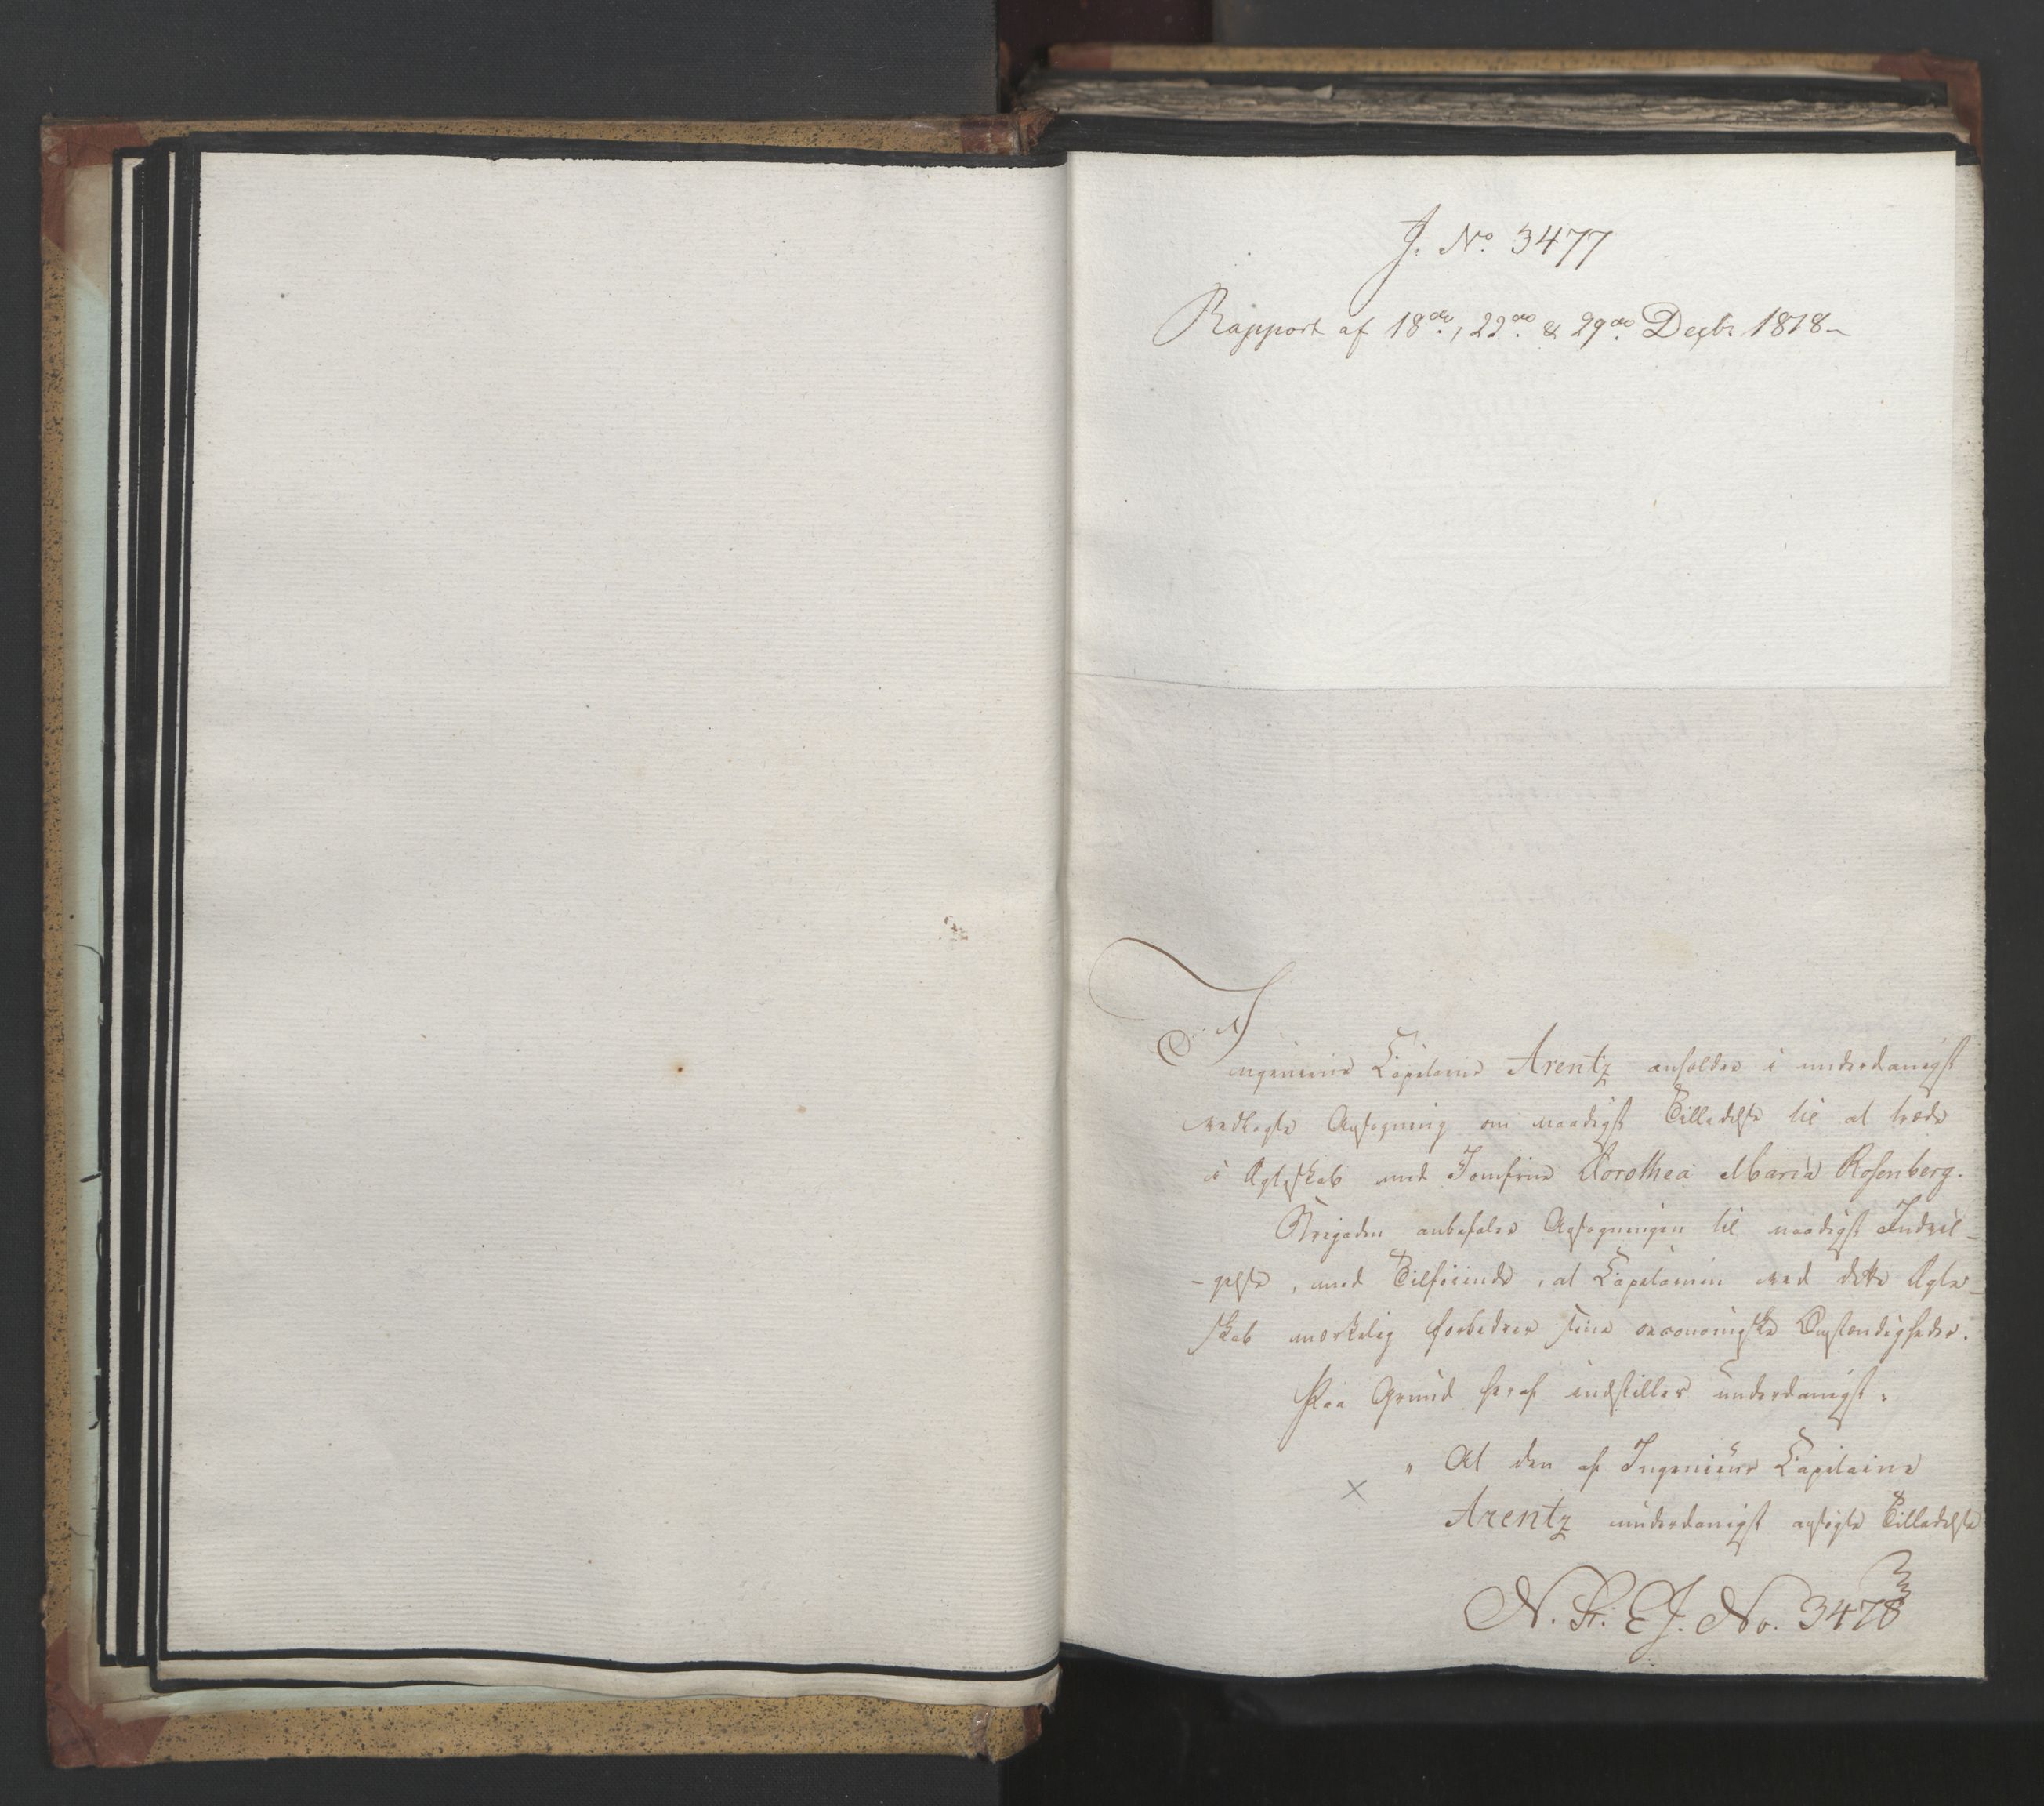 J. No. 3477
Rapport af 18de, 22de & 29de Decbr 1818
Ingenieur Capitaine Arentz anholder i underdanigst
vedlagte Ansøgning om naadigst Tilladelse til at træde
i Ægteskab med Jomfrue Dorothea Maria Rosenberg.
Brigaden anbefaler Ansøgningen til naadigst Indvil-
-gelse, med Tilføiende, at Capitainen ved dette Ægte-
skab mærkelig forbedrer sine oeconomiske Omstændigheder.
Paa Grund heraf indstilles underdanigst:
" At den af Ingenieur Capitaine
Arentz underdanigst ansøgte Tilladelse
N. St: E. J. No. 3478